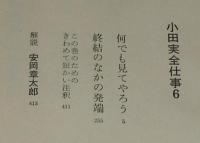 小田実全仕事6
何でも見てやろう 5
終結のなかの発端 255
この巻のための
きわめて短かい注釈 411
解説 安岡章太郎 413